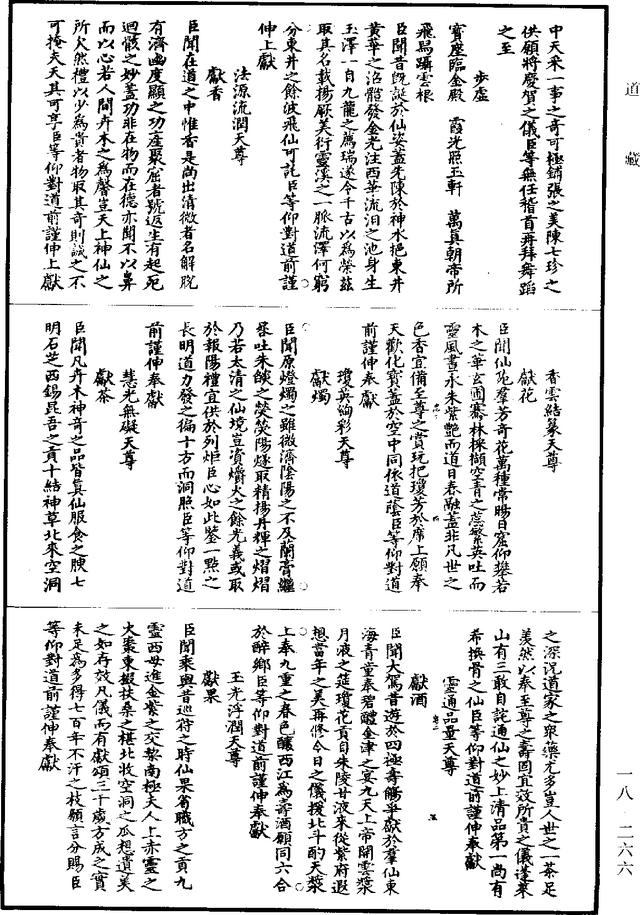 道藏
中天來一事之奇可極鋪張之美陳七珍之
供願將慶賀之儀臣等無任稽首再拜舞蹈
之至
步虛
寶座臨金殿 霞光照玉軒 萬真朝帝所
飛舄躡雲根
臣聞昔既誕於仙姿蓋先陳於神水挹東井
黃華之洺體發金光注西華流汨之池身生
玉澤一自九龍之薦瑞遂令千古以為榮茲
取其名載揚厥美衍靈溪之一脈流澤何窮
分東井之餘波飛仙可託臣等仰對道前謹
伸上獻
法源流潤天尊
獻香
臣聞在道之中惟香是尚出清微者名解脫
有濟幽度顯之功產聚窟者號返生有起死
迴骸之妙蓋功非在物而在德亦聞不以鼻
而以心若人間卉木之為馨豈天上神仙之
所欠然禮以少為貴者物取其奇則誠之不
可掩夫天其可享臣等仰對道前謹伸上獻
香雲結篆天尊
獻花
臣聞仙苑羣芳奇花萬種常暘日窟仰攀若
木之華玄圃騫林採擷空青之蕊繁英吐而
靈風晝永朱紫艷而道日春融蓋非凡世之
色香宜備至尊之賞玩把瓊芳於席上願奉
天歡化寶蓋於空中同依道蔭臣等仰對道
前謹伸奉獻
瓊英絢彩天尊
獻燭
臣聞原燈燭之雖微濟陰陽之不及蘭膏繼
晷吐朱燄之熒熒陽燧取精揚丹輝之熠熠
乃若太清之仙境豈資爝火之餘光義或取
於報陽禮宜供於列炬臣心如此鑒一點之
長明道力發之徧十方而洞照臣等仰對道
前謹伸奉獻
慧光無礙天尊
獻茶
臣聞凡卉木神奇之品皆真仙服食之腴七
明石芝西錫昆吾之貢十結神草北來空洞
之深況道家之眾藥尤多豈人世之一茶足
羡然以奉至尊之壽固宜效所貴之儀蓬萊
山有三敢自詫通仙之妙上清品第一尚有
希換骨之仙臣等仰對道前謹伸奉獻
靈通品量天尊
獻酒
臣聞大駕昔遊於四極壽觴爭獻於羣仙東
海青童奉碧醴金津之宴九天上帝開雲漿
月液之筵瓊花貢自朱陵甘液來從紫府遐
想當年之美再修今日之儀援北斗酌天漿
上奉九重之春色釀西江為壽酒願同六合
於醉鄉臣等仰對道前謹伸奉獻
玉光浮潤天尊
獻果
臣聞乘輿昔巡狩之時仙果省職方之貢九
靈西母進金紫之交梨南極夫人上赤靈之
火棗東掇扶桑之椹北收空洞之瓜想遺美
之如存效凡儀而有獻頌三千歲方成之實
未足為多得七百年不汗之枝願言分賜臣
等仰對道前謹伸奉獻
一八 二六六